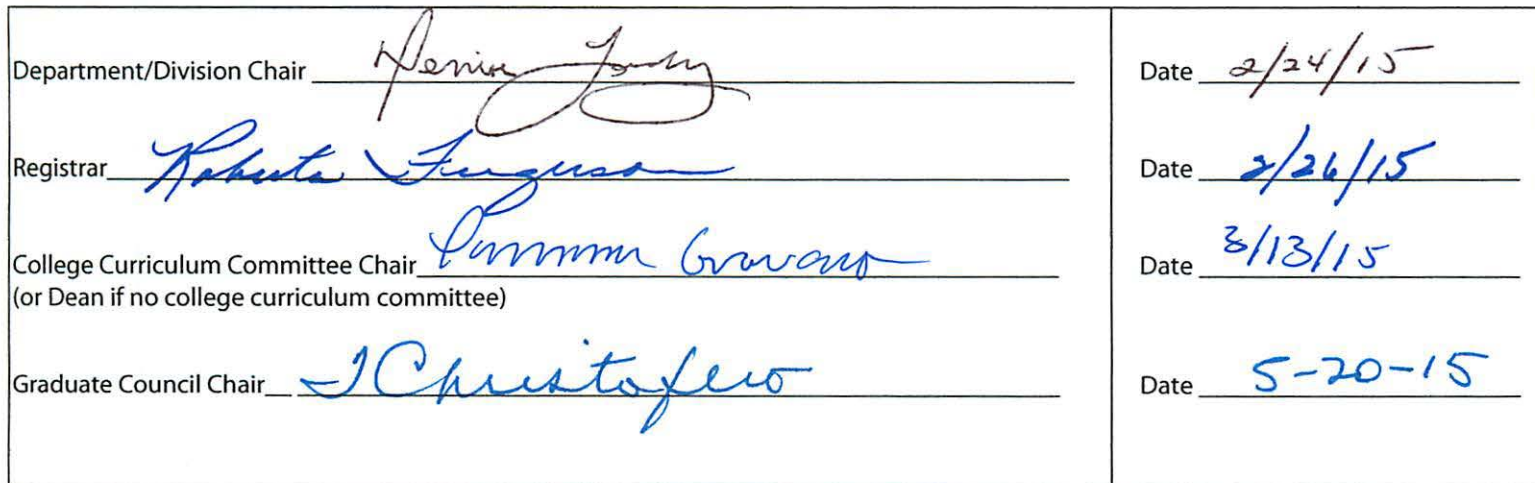 Department/Division Chair Date 2/24/15
Registrar Roberta Ferguson Date 2/26/15
College Curriculum Committee Chair Date 3/13/15
(or Dean if no college curriculum committee)
Graduate Council Chair J Christofero Date 5-20-15